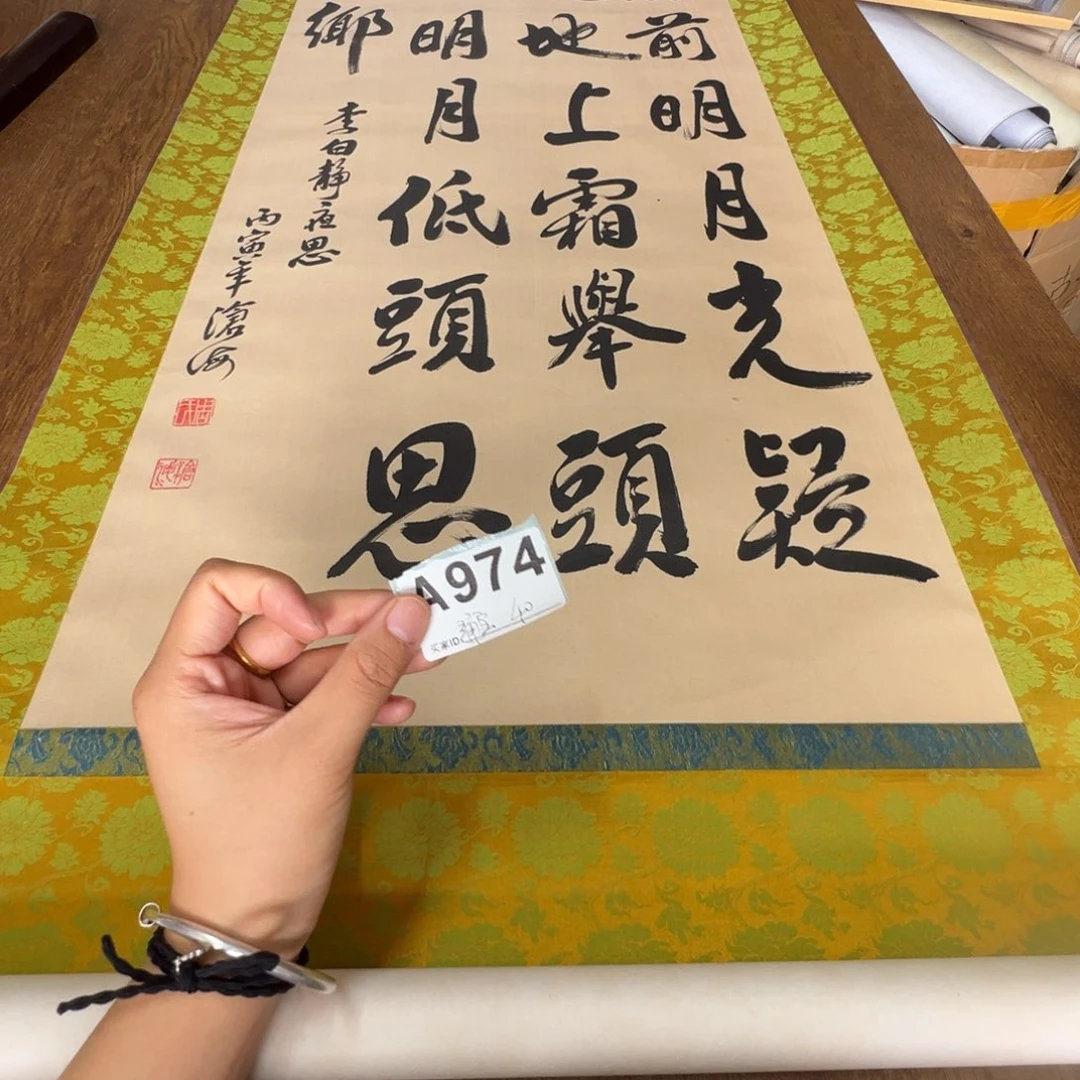 前明月光疑
地上霜舉頭
明月低頭思
鄉
李白靜夜思
丙寅年滄海
A974
买家ID
40